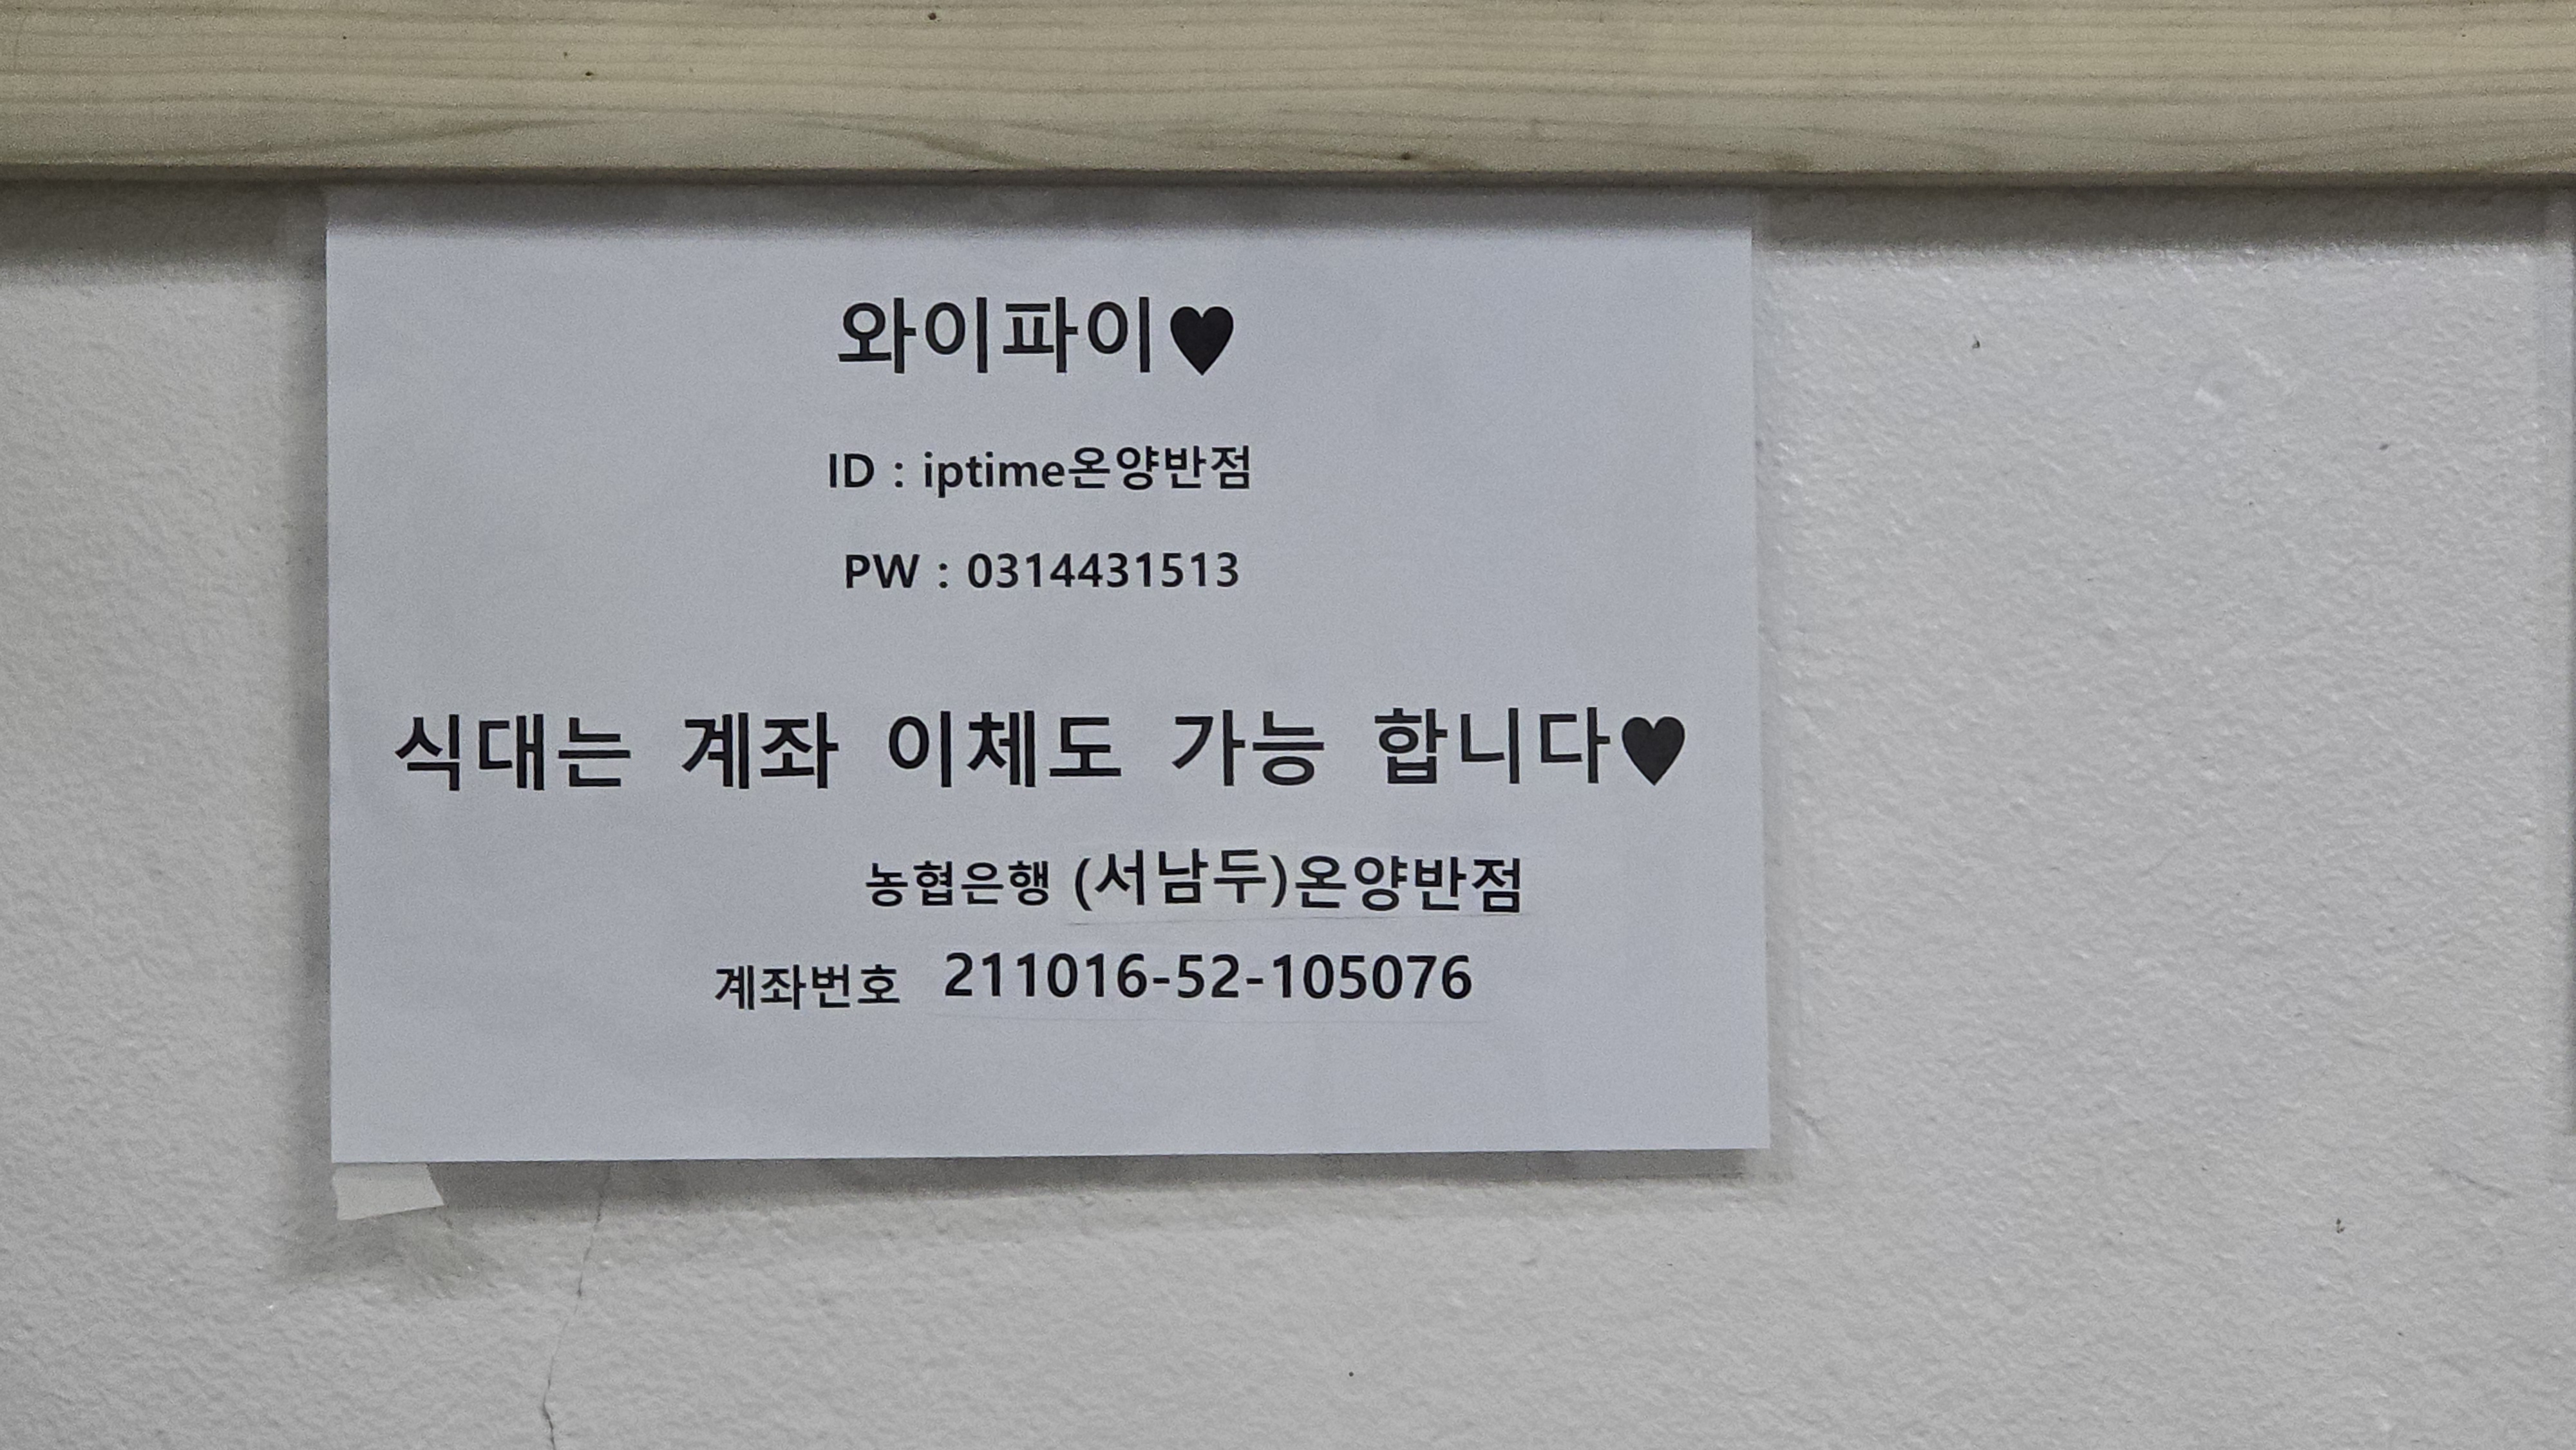 와이파이♥
ID : iptime온양반점
PW : 0314431513
식대는 계좌 이체도 가능 합니다♥
농협은행 (서남두)온양반점
계좌번호 211016-52-105076